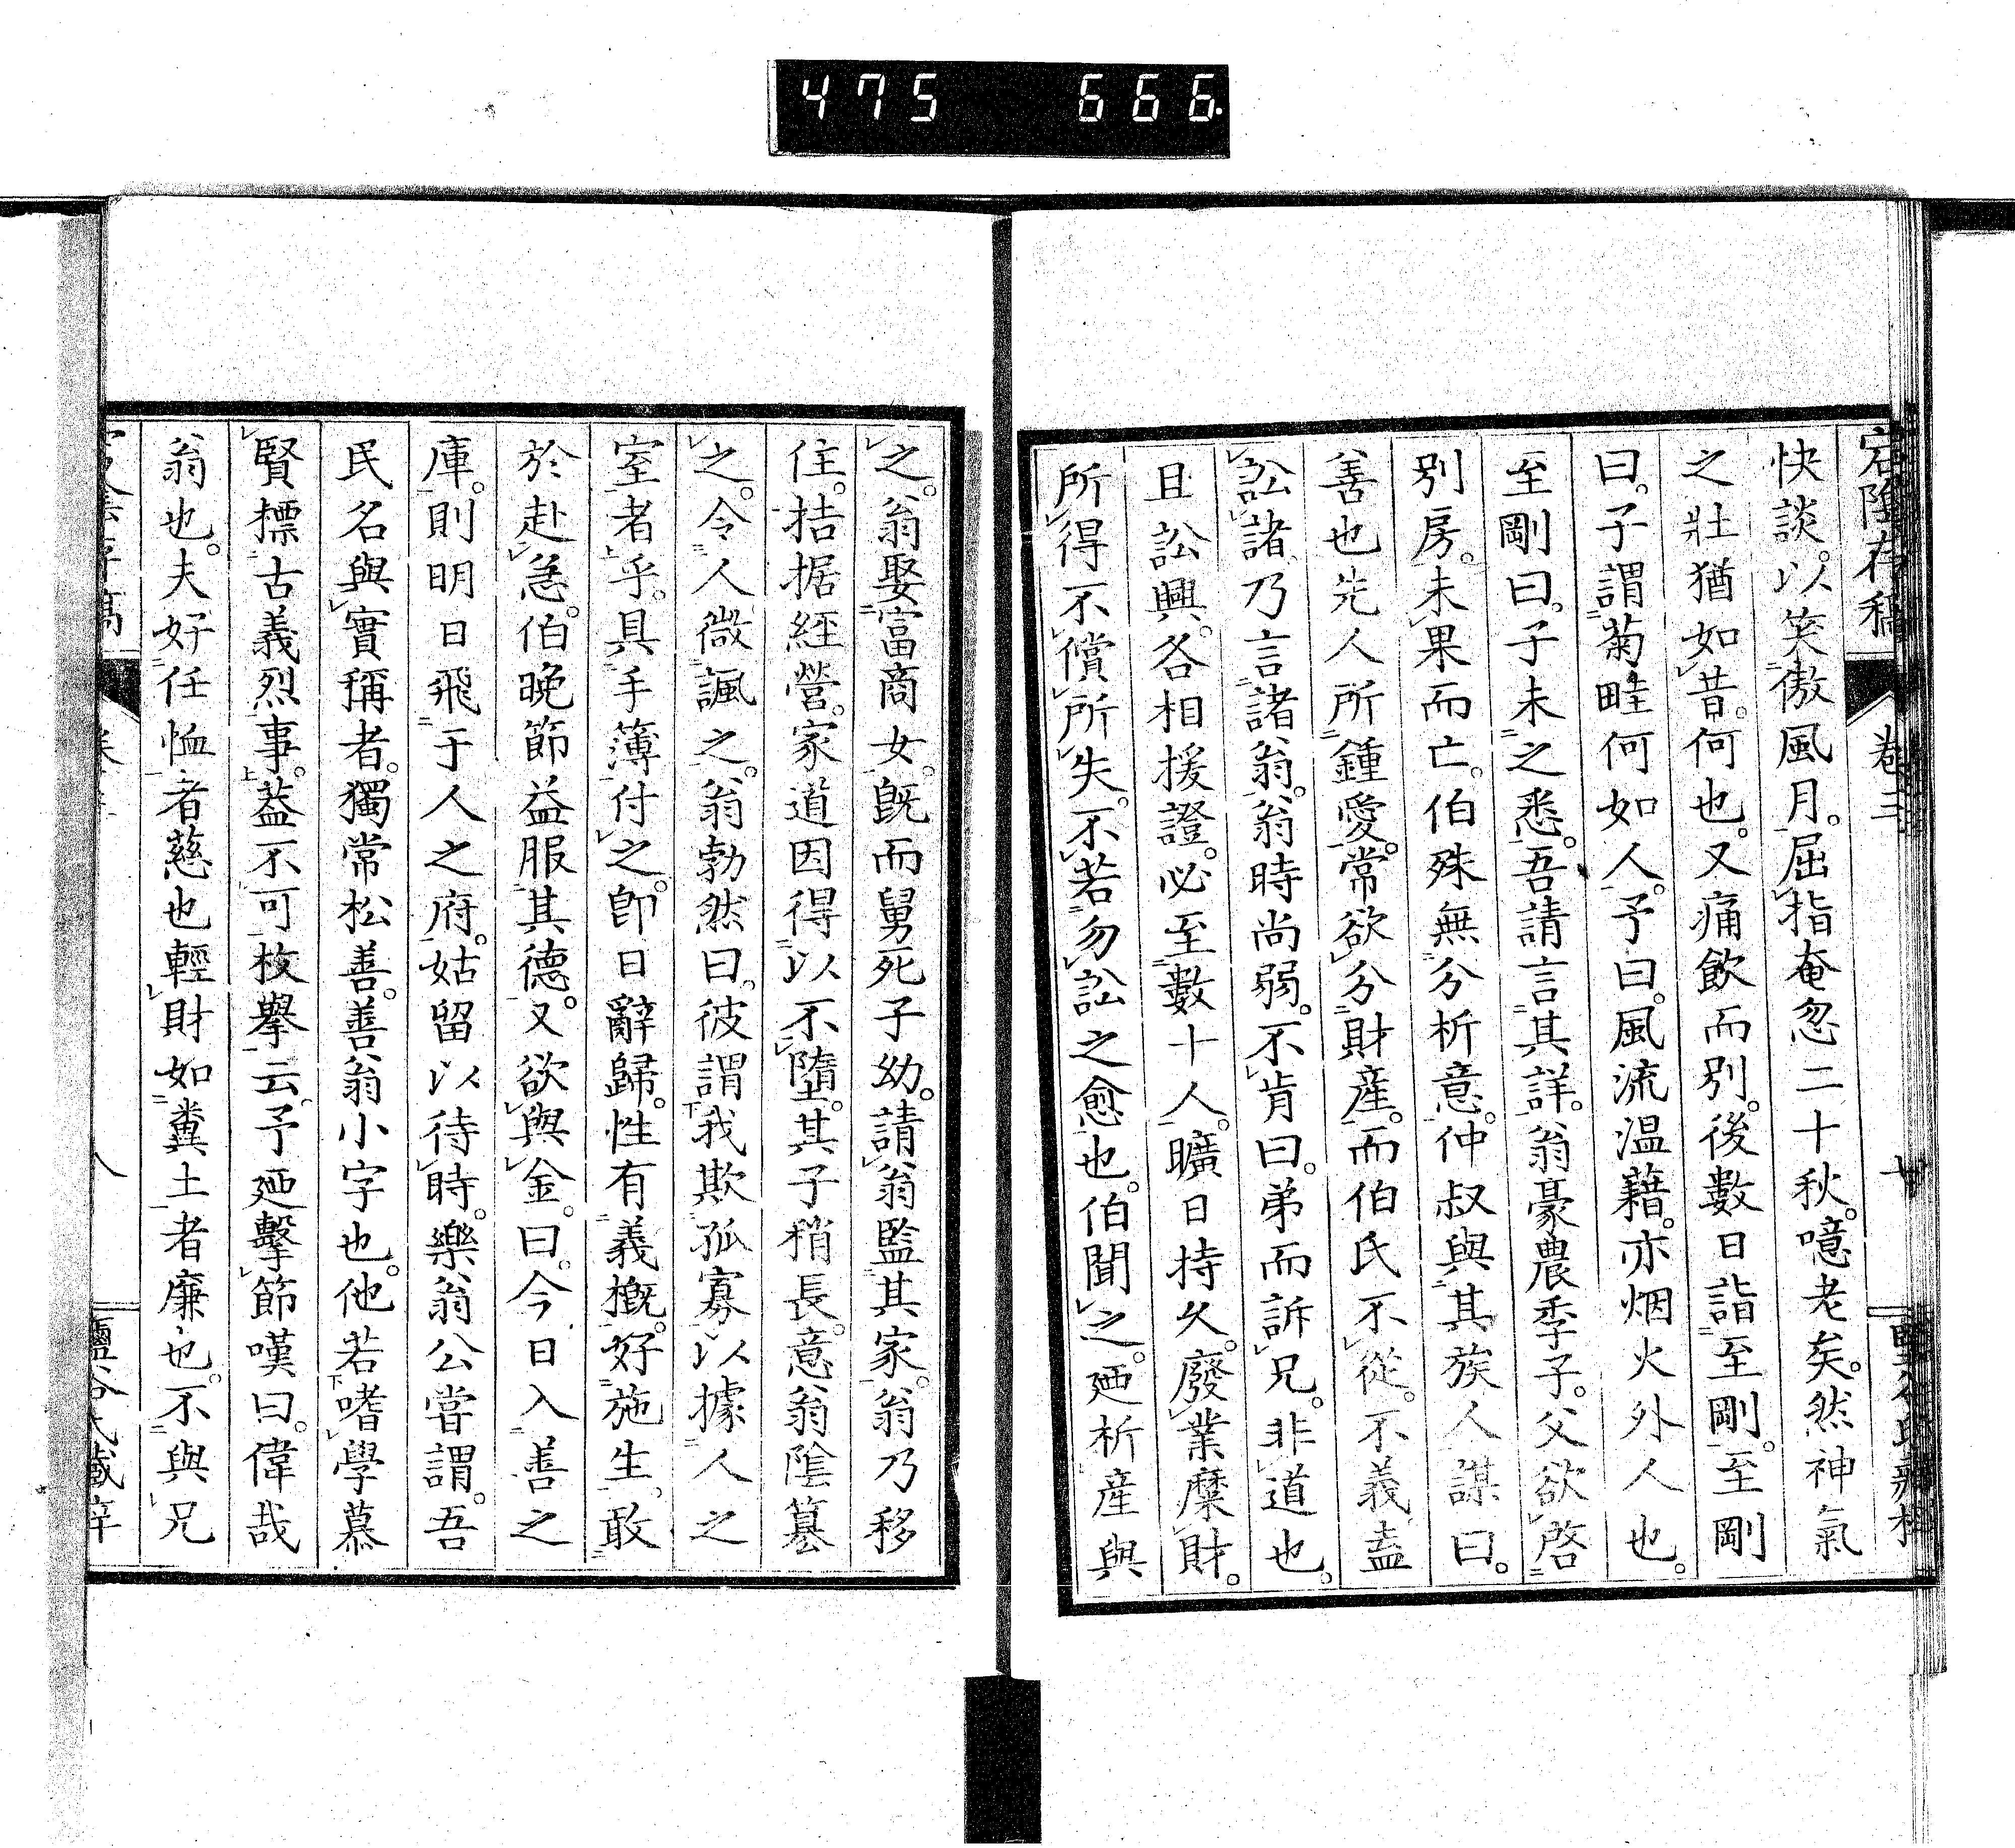 475 666.
快談。以笑傲風月。屈指奄忽二十秋。噫老矣。然神氣
之壯猶如昔。何也。又痛飲而別。後數日詣至剛。至剛
曰。子謂菊畦何如人。予曰。風流溫藉。亦烟火外人也。
至剛曰。子未之悉。吾請言其詳。翁豪農季子。父欲啓
別房。未果而亡。伯殊無分析意。仲叔與其族人謀曰。
善也先人所鍾愛。常欲分財産。而伯氏不從。不義盍
訟諸。乃言諸翁。翁時尚弱。不肯曰。弟而訴兄。非道也。
且訟興。各相援證。必至數十人。曠日持久。廢業糜財。
所得不償所失。不若勿訟之愈也。伯聞之。廼析産與
之。翁娶富商女。既而舅死子幼。請翁監其家。翁乃移
住。拮据經營。家道因得以不墮。其子稍長。意翁陰簒
之。令人微諷之。翁勃然曰。彼謂我欺孤寡以據人之
室者乎。具手簿付之。卽日辭歸。性有義槪。好施生。敢
於赴急。伯晩節益服其德。又欲與金。曰。今日入善之
庫。則明日飛于人之府。姑留以待時。樂翁公嘗謂。吾
民名與實稱者。獨常松善。善翁小字也。他若嗜學慕
賢。標古義烈事。葢不可枚擧云。予廼擊節嘆曰。偉哉
翁也。夫好任恤者慈也。輕財如糞土者廉也。不與兄